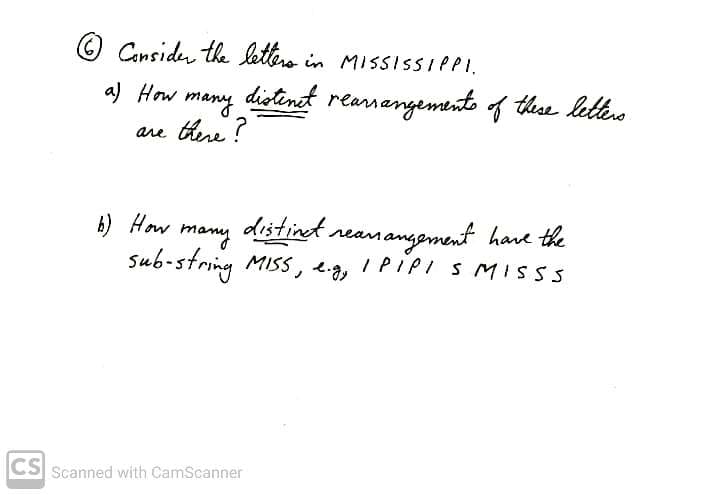 ⑥ Consider the letters in MISSISSIPPI.
a) How many distinct rearrangements of these letters
are there?
b) How many distinct rearrangement have the
sub-string MISS, e.g, IPIPI S MISSS
CS Scanned with CamScanner